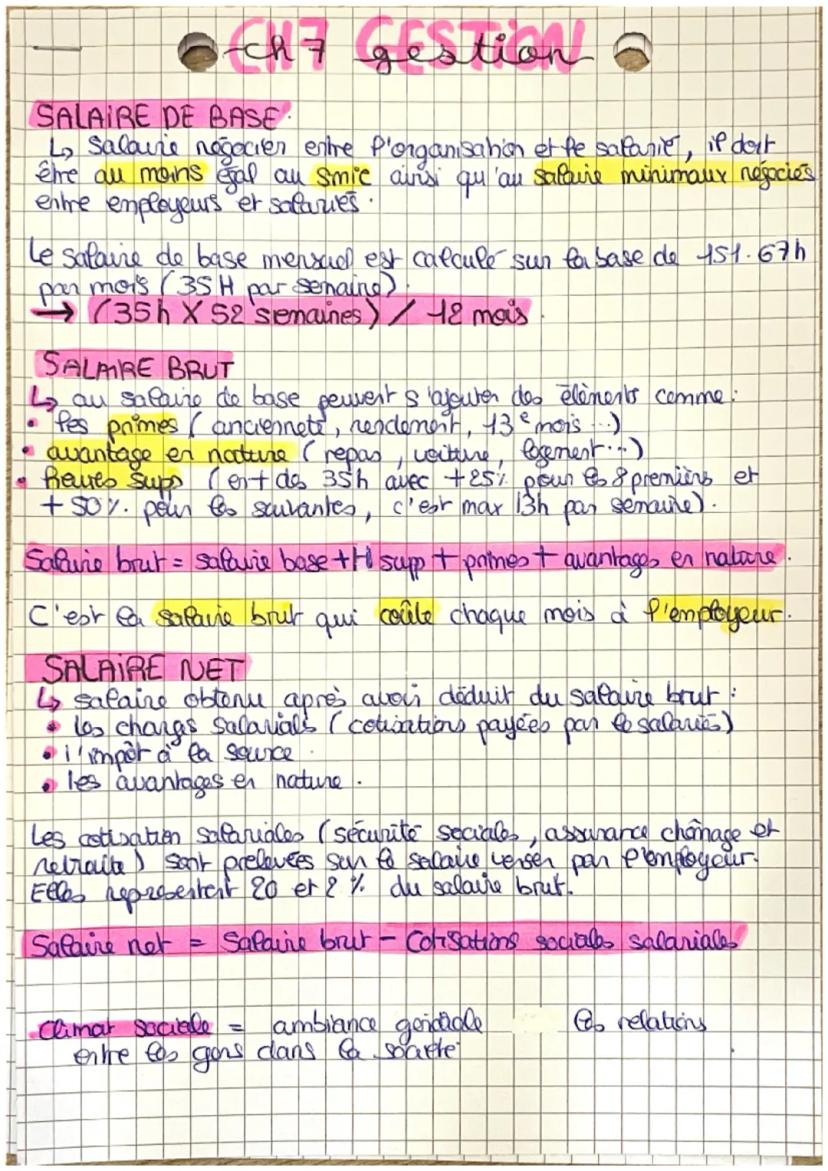 CH7 GESTION
ch 7 gestion
SALAIRE DE BASE
↳ Salaire négocier entre l'organisation et le salarié, il doit
être au moins égal au smic ainsi qu'au salaire minimaux négociés
entre employeurs et salariés.
Le salaire de base mensuel est calculé sur la base de 151.67h
par mois (35H par semaine).
→ (35h X 52 semaines) / 12 mois.
SALAIRE BRUT
↳ au salaire de base peuvent s'ajouter des éléments comme :
• les primes (ancienneté, rendement, 13e mois...)
• avantage en nature (repas, voiture, logement...)
• Heures supp (en + des 35h avec +25% pour les 8 premières et
+ 50% pour les suivantes, c'est max 13h par semaine).
Salaire brut = salaire base + H supp + primes + avantages en nature.
C'est la salaire brut qui coûte chaque mois à l'employeur.
SALAIRE NET
↳ salaire obtenu après avoir déduit du salaire brut :
• les charges salarials (cotisations payées par le salariés)
• l'impôt à la source.
• les avantages en nature.
Les cotisation salariales (sécurité sociales, assurance chômage et
retraite) sont prelevées sur le salaire verser par l'employeur.
Elles représentent 20 et 2 % du salaire brut.
Salaire net = Salaire brut - Cotisations sociales salariales
Climat sociale = ambiance générale les relations
entre les gens dans la société